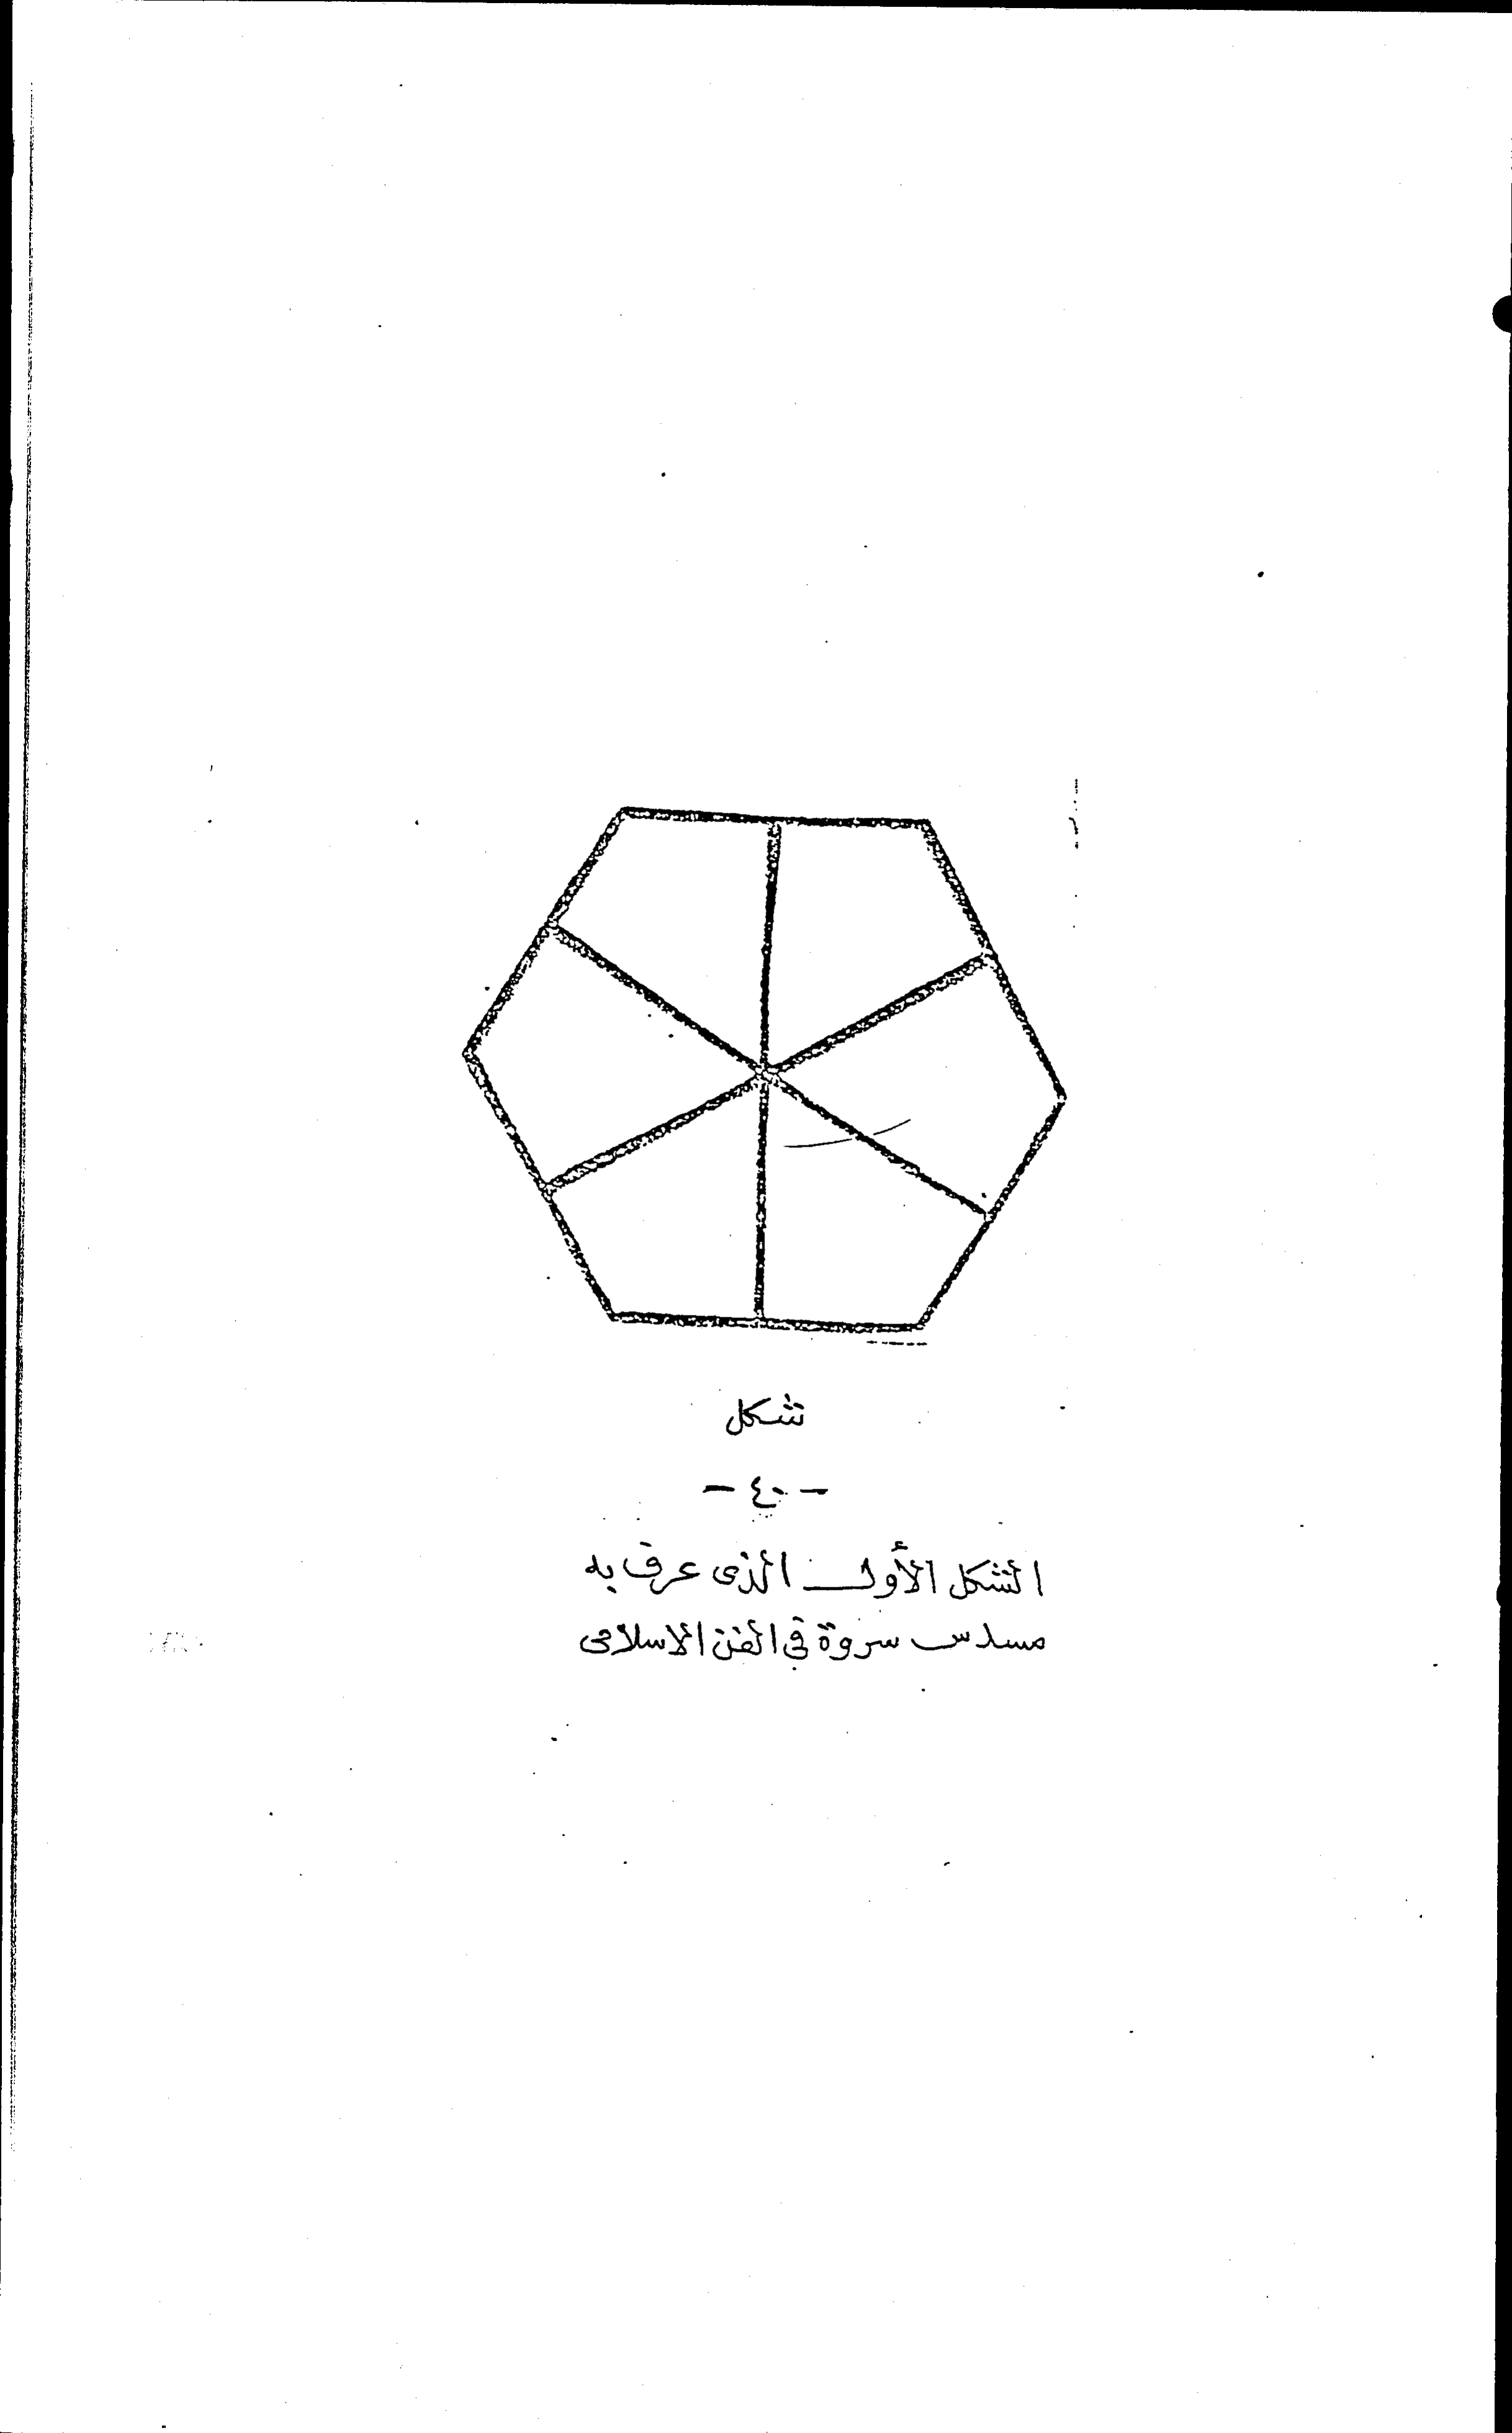 شكل
- ٤٠ -
الشكل الأول الذى عرف به
مسدس سروة في الفن الاسلامى